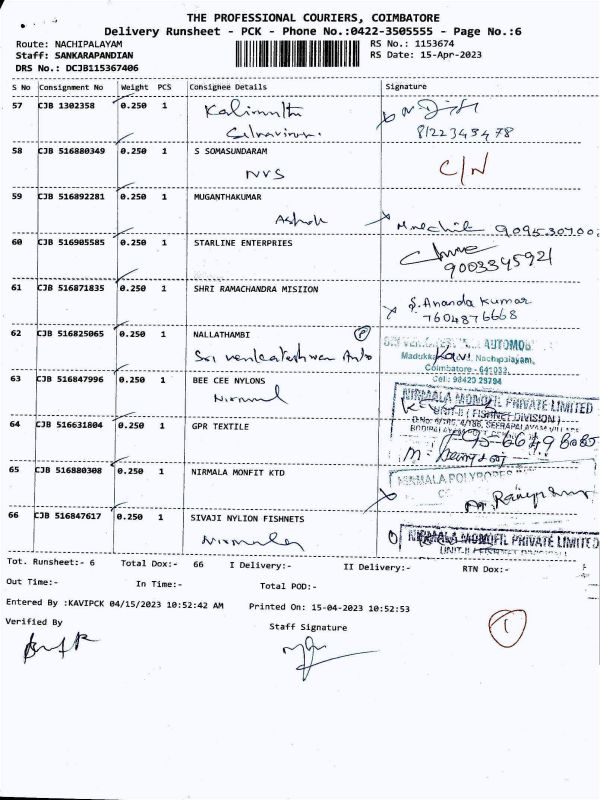 THE PROFESSIONAL COURIERS, COIMBATORE
Delivery Runsheet - PCK - Phone No.:0422-3505555 - Page No.:6
Route: NACHIPALAYAM RS No.: 1153674
Staff: SANKARAPANDIAN RS Date: 15-Apr-2023
DRS No.: DCJB115367406
S No Consignment No Weight PCS Consignee Details Signature
57 CJB 1302358 0.250 1
8122343478
58 CJB 516880349 0.250 1 S SOMASUNDARAM
NVS C/N
59 CJB 516892281 0.250 1 MUGANTHAKUMAR
Ashok
60 CJB 516905585 0.250 1 STARLINE ENTERPRIES
9003345921
61 CJB 516871835 0.250 1 SHRI RAMACHANDRA MISIION
S. Ananda Kumar
7604876668
62 CJB 516825065 0.250 1 NALLATHAMBI P
AUTOMOB
Sri venkateshwara Auto Madukka Nachipalayam,
Coimbatore - 641032.
Cell: 98420 29794
63 CJB 516847996 0.250 1 BEE CEE NYLONS
Nirmal NIRMALA MONOFIL PRIVATE LIMITED
UNIT-II ( FISHNET DIVISION )
64 CJB 516631804 0.250 1 GPR TEXTILE
65 CJB 516880308 0.250 1 NIRMALA MONFIT KTD
NIRMALA POLYROPES
66 CJB 516847617 0.250 1 SIVAJI NYLION FISHNETS
Nirmala NIRMALA MONOFIL PRIVATE LIMITED
Tot. Runsheet:- 6 Total Dox:- 66 I Delivery:- II Delivery:- RTN Dox:-
Out Time:- In Time:- Total POD:-
Entered By :KAVIPCK 04/15/2023 10:52:42 AM Printed On: 15-04-2023 10:52:53
Verified By Staff Signature
1